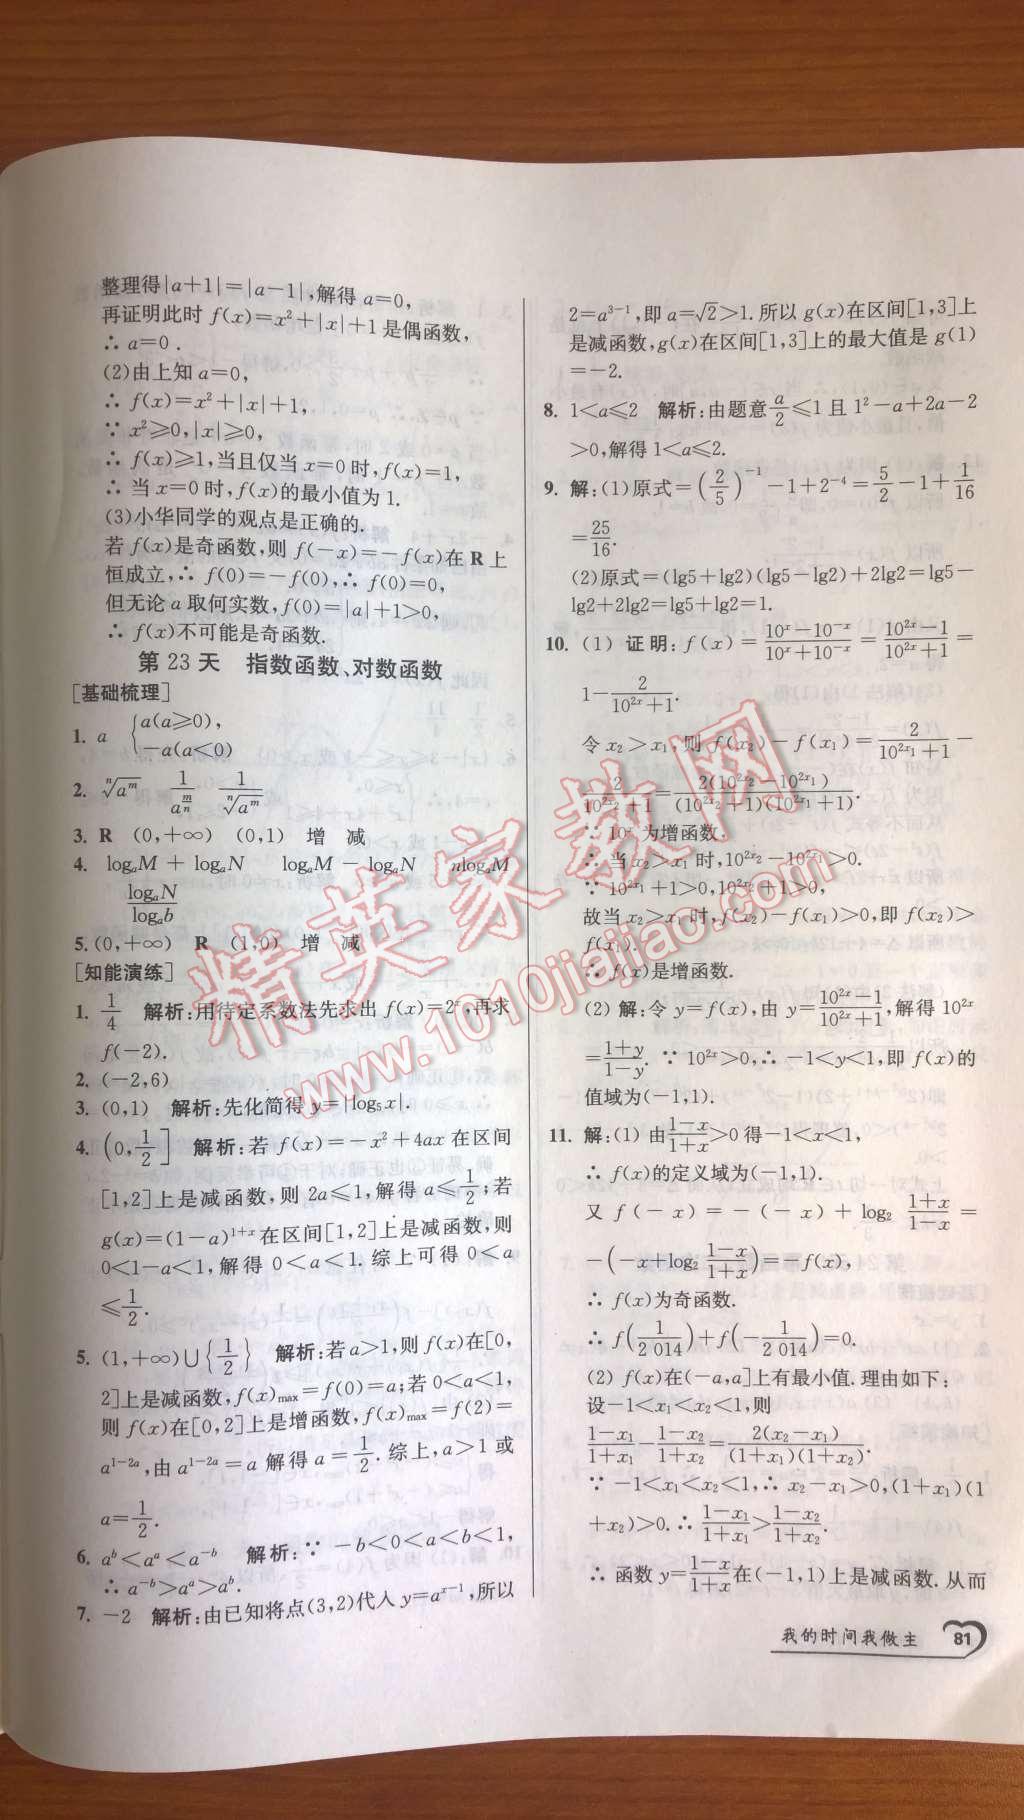 整理得|a+1|=|a-1|,解得 a=0,
再证明此时 f(x)=x²+|x|+1 是偶函数,
∴ a=0 .
(2)由上知 a=0,
∴ f(x)=x²+|x|+1,
∵ x²≥0,|x|≥0,
∴ f(x)≥1,当且仅当 x=0 时,f(x)=1,
∴ 当 x=0 时,f(x)的最小值为 1.
(3)小华同学的观点是正确的.
若 f(x)是奇函数,则 f(-x)=-f(x)在 R 上
恒成立,∴ f(0)=-f(0),∴ f(0)=0,
但无论 a 取何实数,f(0)=|a|+1>0,
∴ f(x)不可能是奇函数.
第 23 天 指数函数、对数函数
[基础梳理]
1. a {a(a≥0),
-a(a<0)
2. ⁿ√(a^m) 1/a^(m/n) 1/ⁿ√(a^m)
3. R (0,+∞) (0,1) 增 减
4. logₐM + logₐN logₐM - logₐN nlogₐM
logₐN/logₐb
5. (0,+∞) R (1,0) 增 减
[知能演练]
1. 1/4 解析:用待定系数法先求出 f(x)=2^x,再求
f(-2).
2. (-2,6)
3. (0,1) 解析:先化简得 y=|log₅x|.
4. (0,1/2] 解析:若 f(x)=-x²+4ax 在区间
[1,2]上是减函数,则 2a≤1,解得 a≤1/2;若
g(x)=(1-a)^(1+x) 在区间[1,2]上是减函数,则
0<1-a<1,解得 0<a<1. 综上可得 0<a
≤1/2.
5. (1,+∞)∪{1/2} 解析:若 a>1,则 f(x)在[0,
2]上是减函数,f(x)max=f(0)=a;若 0<a<1,
则 f(x)在[0,2]上是增函数,f(x)max=f(2)=
a^(1-2a),由 a^(1-2a)=a 解得 a=1/2. 综上,a>1 或
a=1/2.
6. a^b<a^a<a^(-b) 解析:∵ -b<0<a<b<1,
∴ a^(-b)>a^a>a^b.
7. -2 解析:由已知将点(3,2)代入 y=a^(x-1),所以
2=a^(3-1),即 a=√2>1.所以 g(x)在区间[1,3]上
是减函数,g(x)在区间[1,3]上的最大值是 g(1)
=-2.
8. 1<a≤2 解析:由题意 a/2≤1 且 1²-a+2a-2
>0,解得 1<a≤2.
9. 解:(1)原式=(2/5)^(-1)-1+2^(-4)=5/2-1+1/16
=25/16.
(2)原式=(lg5+lg2)(lg5-lg2)+2lg2=lg5-
lg2+2lg2=lg5+lg2=1.
10. (1) 证明:f(x)=(10^x-10^(-x))/(10^x+10^(-x))=(10^(2x)-1)/(10^(2x)+1)=
1-2/(10^(2x)+1).
令 x₂>x₁,则 f(x₂)-f(x₁)=2/(10^(2x₁)+1)-
2/(10^(2x₂)+1)=2(10^(2x₂)-10^(2x₁))/((10^(2x₂)+1)(10^(2x₁)+1)).
∵ 10^x 为增函数.
∴ 当 x₂>x₁ 时,10^(2x₂)-10^(2x₁)>0.
∵ 10^(2x₁)+1>0,10^(2x₂)+1>0,
故当 x₂>x₁ 时,f(x₂)-f(x₁)>0,即 f(x₂)>
f(x₁).
∴ f(x)是增函数.
(2) 解:令 y=f(x),由 y=(10^(2x)-1)/(10^(2x)+1),解得 10^(2x)
=(1+y)/(1-y). ∵ 10^(2x)>0,∴ -1<y<1,即 f(x)的
值域为(-1,1).
11. 解:(1) 由(1-x)/(1+x)>0 得-1<x<1,
∴ f(x)的定义域为(-1,1).
又 f(-x)=-(-x)+log₂ (1+x)/(1-x)=
-(-x+log₂ (1-x)/(1+x))=-f(x),
∴ f(x)为奇函数.
∴ f(1/2 014)+f(-1/2 014)=0.
(2) f(x)在(-a,a]上有最小值.理由如下:
设-1<x₁<x₂<1,则
(1-x₁)/(1+x₁)-(1-x₂)/(1+x₂)=2(x₂-x₁)/((1+x₁)(1+x₂)).
∵ -1<x₁<x₂<1,∴ x₂-x₁>0,(1+x₁)(1
+x₂)>0.∴ (1-x₁)/(1+x₁)>(1-x₂)/(1+x₂).
∴ 函数 y=(1-x)/(1+x)在(-1,1)上是减函数.从而
我的时间我做主 81
精英家教网
www.1010jiajiao.com